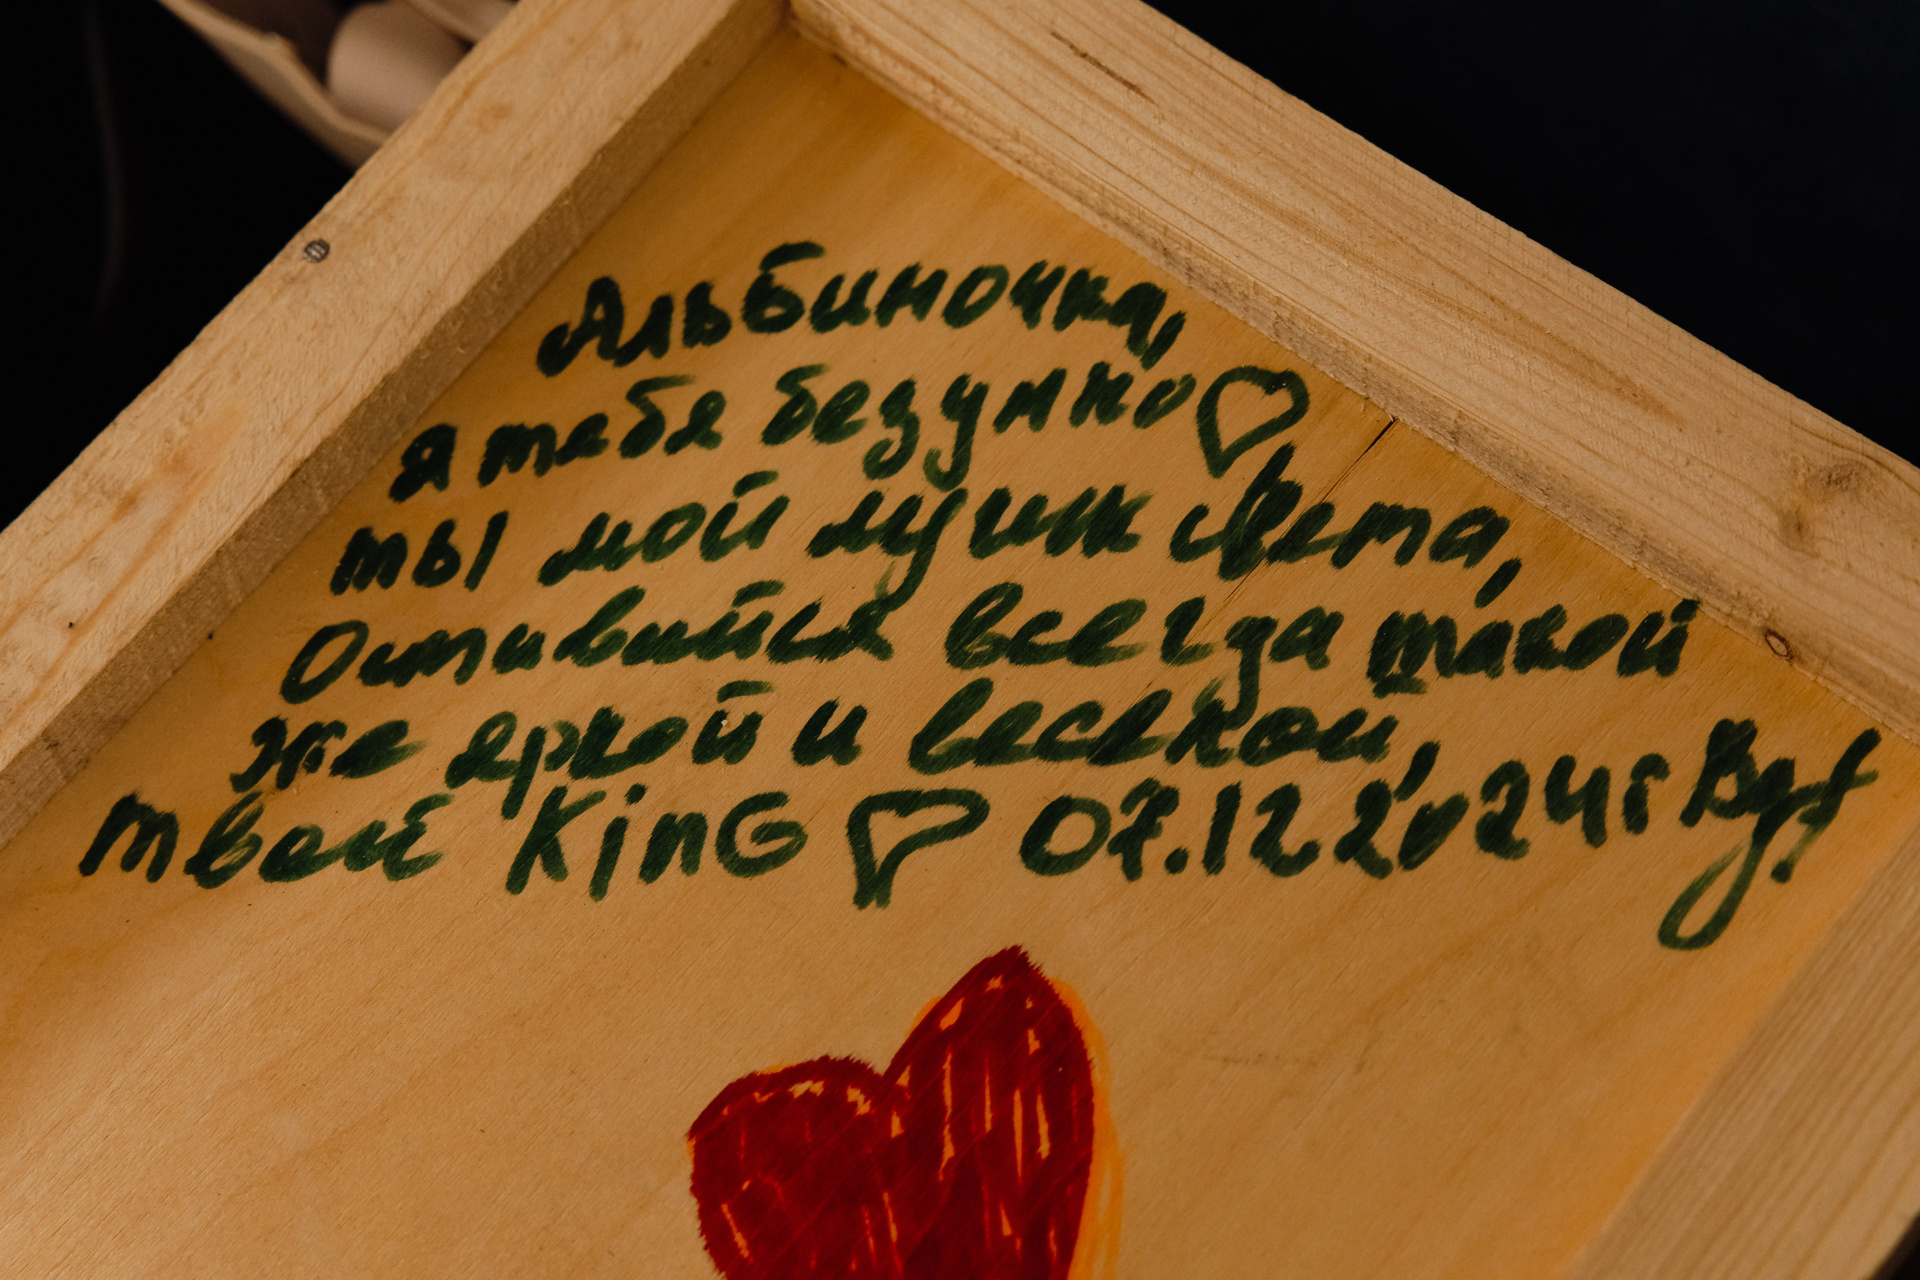 Альбиночка,
я тебя безумно♡
ты мой лучик света,
Оставайся всегда такой
же яркой и веселой,
твой KinG♡ 07.12.2024г